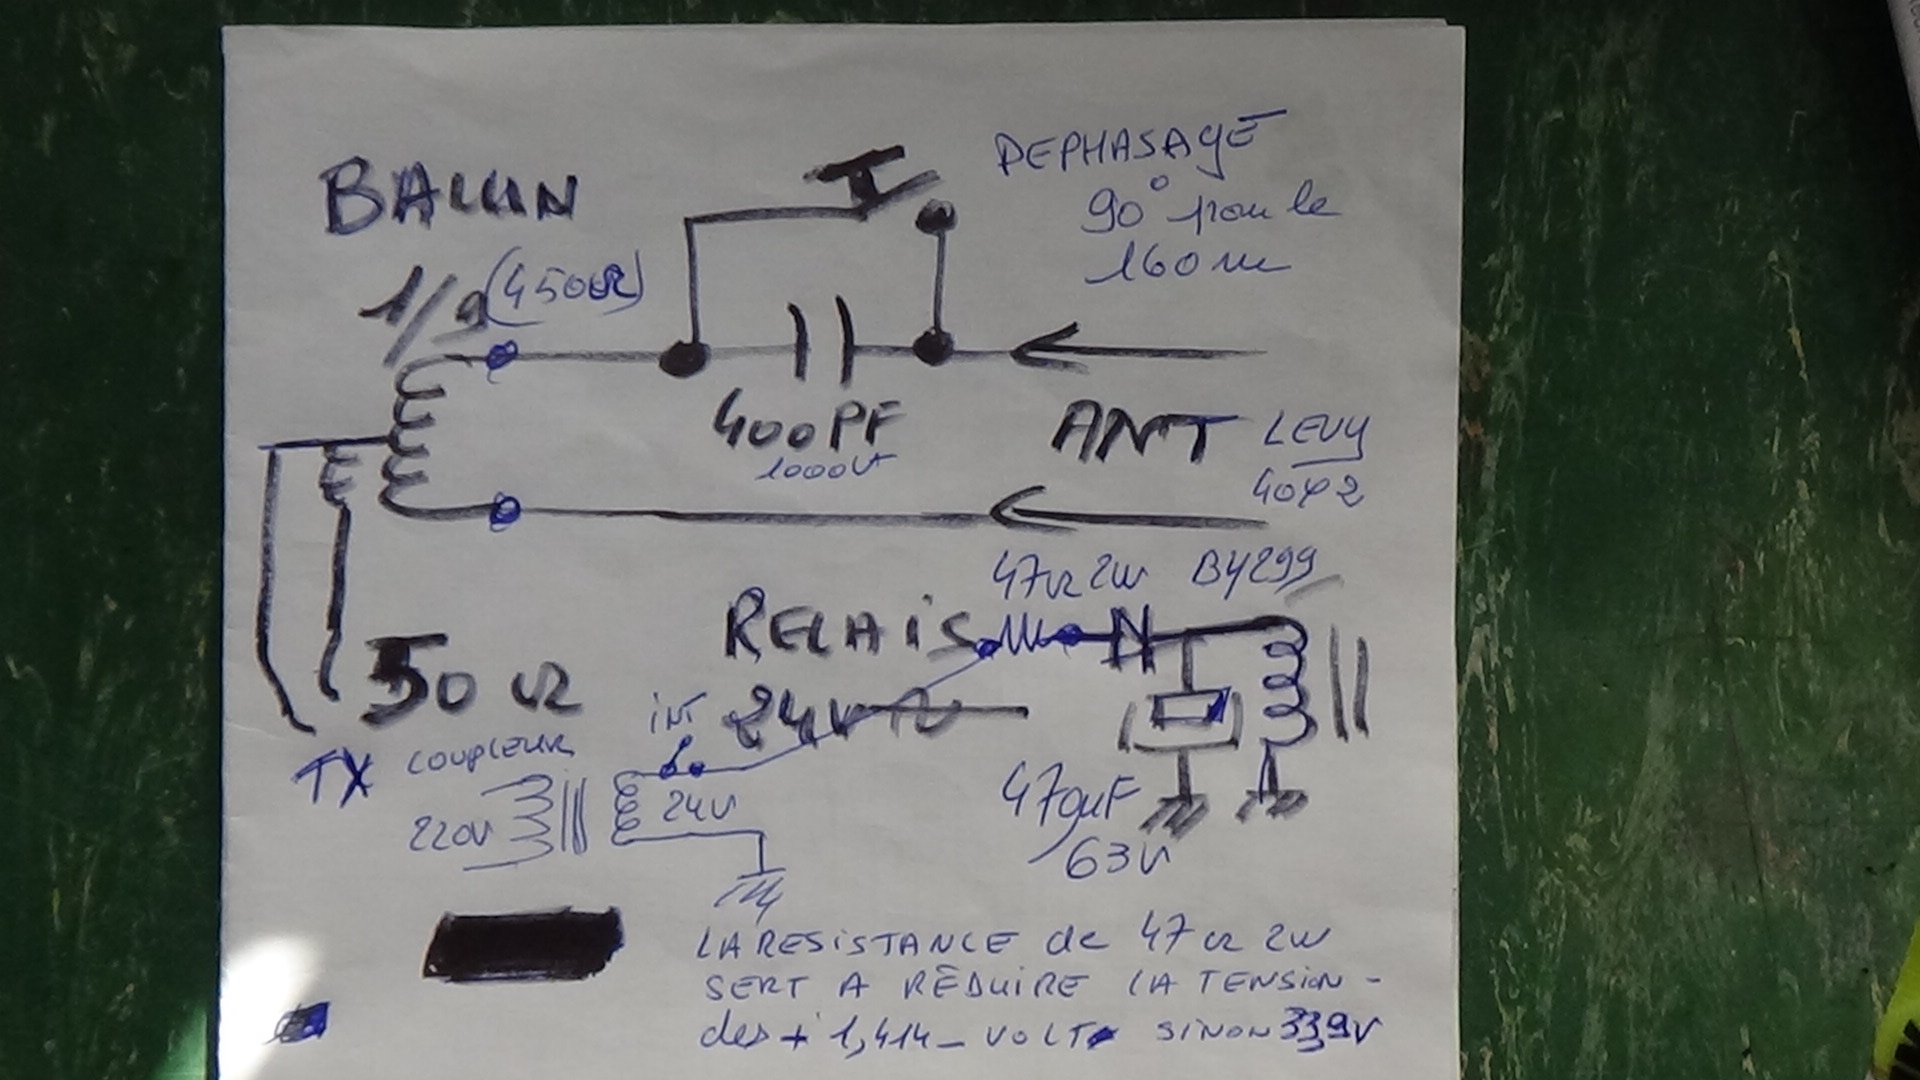 BALUN
1/9 (450Ω)
DEPHASAGE
90° pour le
160 m
400 PF
1000V
ANT LEVY
40+2
47Ω 2W BY299
RELAIS
24V
50 Ω
INT
TX COUPLEUR
220V
24V
470µF
63V
LA RESISTANCE de 47Ω 2W
SERT A RÉDUIRE LA TENSION -
des + 1,414 - VOLT SINON 33,9V